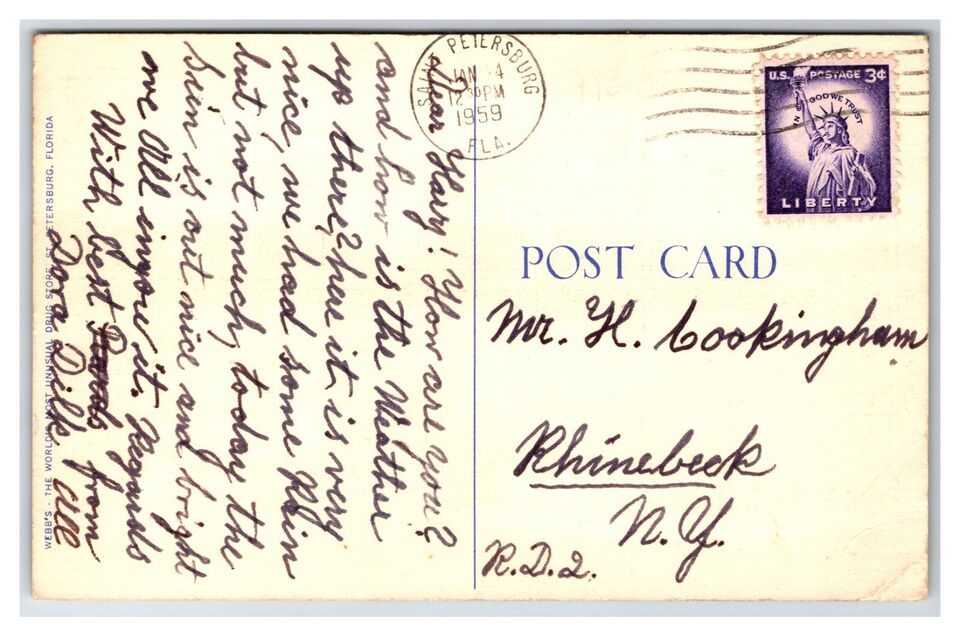 Dear Harry! How are you?
and how is the Weather
up there? here it is very
nice, we had some Rain
but not much, today the
Sun is out nice and bright
we All injoye it. Regards
With best from
Dora Dilk. All
WEBB'S - THE WORLD'S MOST UNUSUAL DRUG STORE, ST. PETERSBURG, FLORIDA
SAINT PETERSBURG
JAN 4
12 30 PM
1959
FLA.
U.S. POSTAGE 3¢
IN GOD WE TRUST
LIBERTY
POST CARD
Mr. H. Cookingham
Rhinebeck
N.Y.
R.D.2.